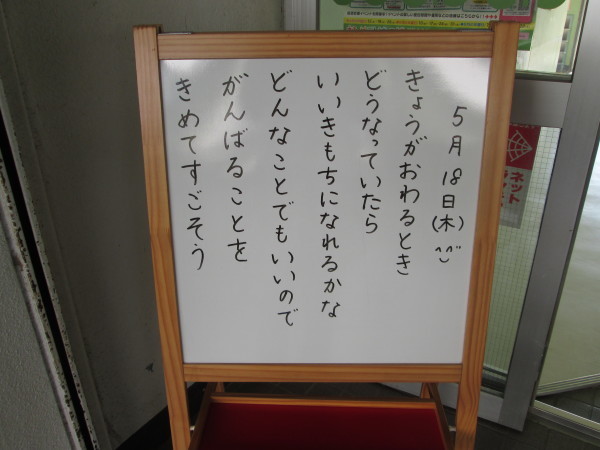 5月18日(木)
きょうがおわるとき
どうなっていたら
いいきもちになれるかな
どんなことでもいいので
がんばることを
きめてすごそう
ネット